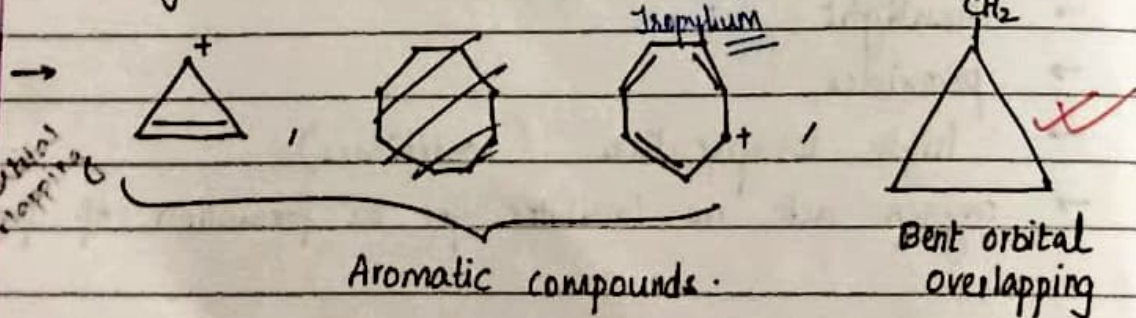 CH2
Tropylium
+
+
Aromatic compounds.
Bent orbital
overlapping